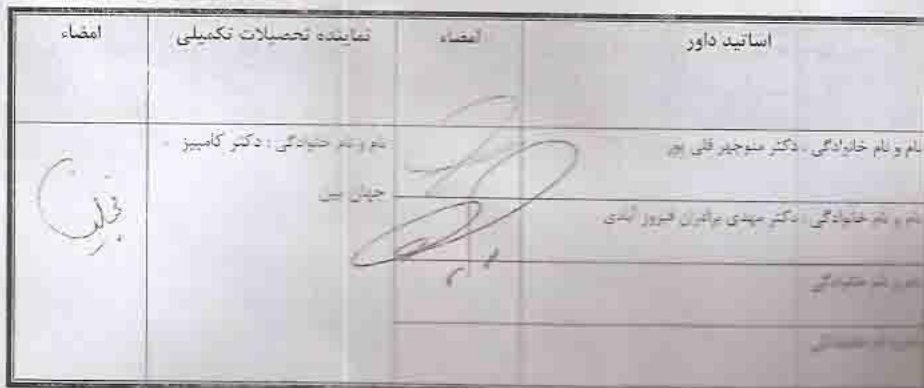 اساتید داور
امضاء
نماینده تحصیلات تکمیلی
امضاء
نام و نام خانوادگی : دکتر منوچهر قلی پور
نام و نام خانوادگی : دکتر کامبیز
جهان بین
نام و نام خانوادگی : دکتر مهدی برادران فیروز آبادی
نام و نام خانوادگی
نام و نام خانوادگی